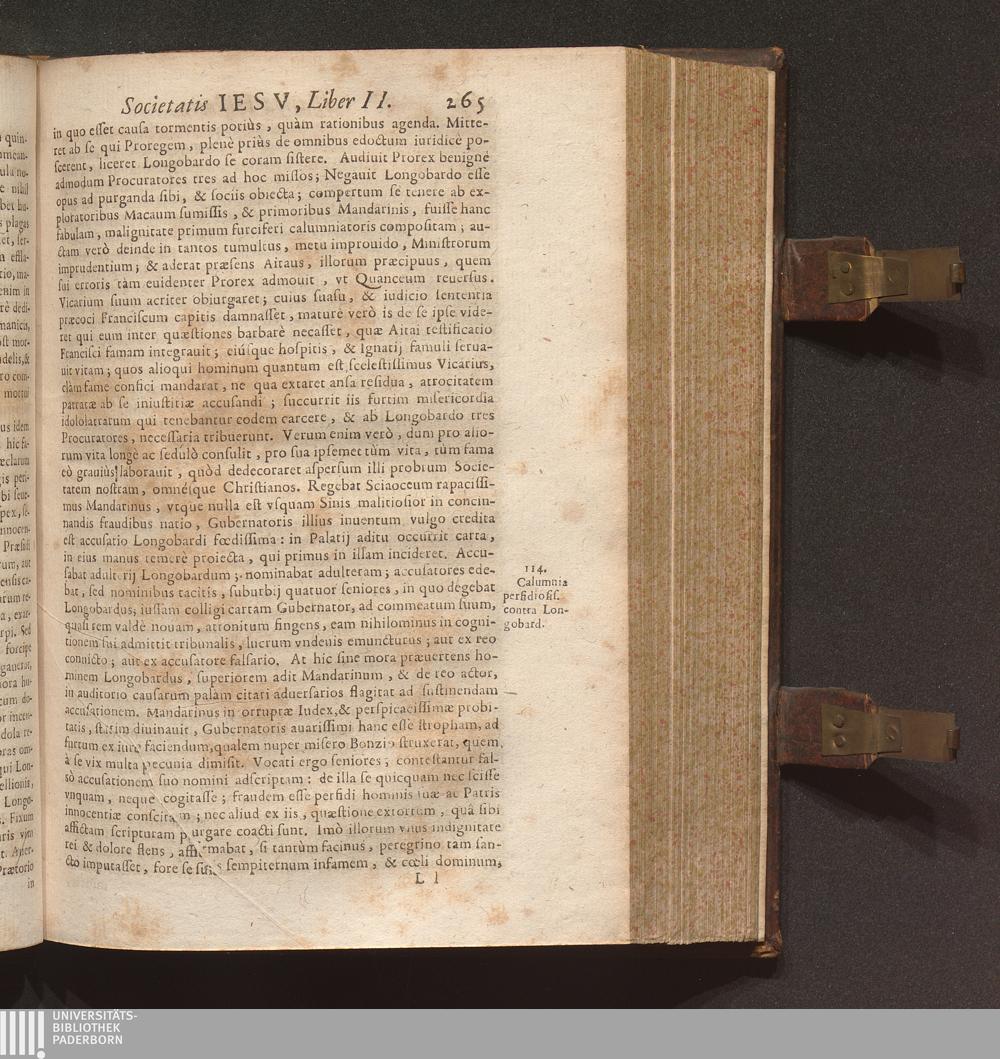 Societatis IESV, Liber II. 265
in quo esset causa tormentis potiùs, quàm rationibus agenda. Mitte-
ret ab se qui Proregem, plenè priùs de omnibus edoctum iuridicè po-
scerent, liceret Longobardo se coram sistere. Audiuit Prorex benignè
admodum Procuratores tres ad hoc missos; Negauit Longobardo esse
opus ad purganda sibi, & sociis obiecta; compertum se tenere ab ex-
ploratoribus Macaum sumissis, & primoribus Mandarinis, fuisse hanc
fabulam, malignitate primum furciferi calumniatoris compositam; au-
ctam verò deinde in tantos tumultus, metu improuido, Ministrorum
imprudentium; & aderat præsens Aitaus, illorum præcipuus, quem
sui erroris tàm euidenter Prorex admouit, vt Quanceum reuersus.
Vicarium suum acriter obiurgaret; cuius suasu, & iudicio sententia
præcoci Franciscum capitis damnasset, maturè verò is de se ipse vide-
ret qui eum inter quæstiones barbarè necasset, quæ Aitai testificatio
Francisci famam integrauit; eiúsque hospitis, & Ignatij famuli serua-
uit vitam; quos alioqui hominum quantum est scelestissimus Vicarius,
clàm fame confici mandarat, ne qua extaret ansa residua, atrocitatem
patratæ ab se iniustitiæ accusandi; succurrit iis furtim misericordia
idololatrarum qui tenebantur eodem carcere, & ab Longobardo tres
Procuratores, necessaria tribuerunt. Verum enim verò, dum pro alio-
rum vita longè ac sedulò consulit, pro sua ipsemet tùm vita, tùm fama
eò grauiùs laborauit, quòd dedecoraret aspersum illi probrum Socie-
tatem nostram, omnésque Christianos. Regebat Sciaoceum rapacissi-
mus Mandarinus, vtque nulla est vsquam Sinis malitiosior in concin-
nandis fraudibus natio, Gubernatoris illius inuentum vulgo credita
est accusatio Longobardi fœdissima: in Palatij aditu occurrit carta,
in eius manus temerè proiecta, qui primus in illam incideret. Accu-
sabat adulterij Longobardum; nominabat adulteram; accusatores ede-
bat, sed nominibus tacitis, suburbij quatuor seniores, in quo degebat
Longobardus; iussam colligi cartam Gubernator, ad commeatum suum,
quasi rem valdè nouam, attonitum fingens, eam nihilominus in cogni-
tionem sui admittit tribunalis, lucrum vndeuis emuncturus; aut ex reo
conuicto; aut ex accusatore falsario. At hic sine mora præuertens ho-
minem Longobardus, superiorem adit Mandarinum, & de reo actor,
in auditorio causarum palàm citari aduersarios flagitat ad sustinendam
accusationem. Mandarinus incorruptæ Iudex, & perspicacissimæ probi-
tatis, statim diuinauit, Gubernatoris auarissimi hanc esse stropham, ad
furtum ex iure faciendum, qualem nuper misero Bonzio struxerat, quem
à se vix multa pecunia dimisit. Vocati ergo seniores; contestantur fal-
sò accusationem suo nomini adscriptam: de illa se quicquam nec scisse
vnquam, neque cogitasse; fraudem esse perfidi hominis suæ ac Patris
innocentiæ conscitam; nec aliud ex iis, quæstione extortum, quâ sibi
affictam scripturam purgare coacti sunt. Imò illorum vnus indignitate
rei & dolore flens, affirmabat, si tantùm facinus, peregrino tam san-
cto imputasset, fore se suis sempiternum infamem, & cœli dominum,
L l
114.
Calumnia
perfidiosiss.
contra Lon-
gobard.
UNIVERSITÄTS-
BIBLIOTHEK
PADERBORN